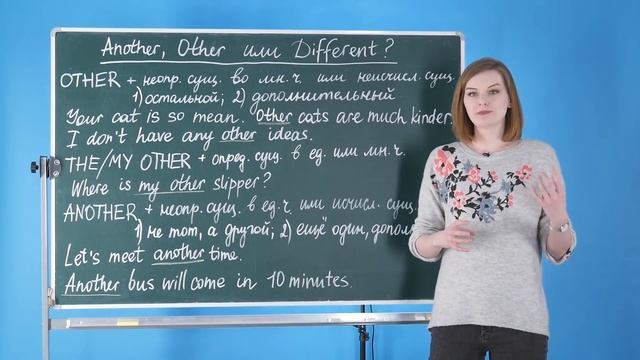 Another, Other или Different?
OTHER + неопр. сущ. во мн. ч. или неисчисл. сущ.
1) остальной; 2) дополнительный
Your cat is so mean. Other cats are much kinder.
I don't have any other ideas.
THE/MY OTHER + опред. сущ. в ед. или мн. ч.
Where is my other slipper?
ANOTHER + неопр. сущ. в ед. ч. или исчисл. сущ.
1) не тот, а другой; 2) ещё один,
Let's meet another time.
Another bus will come in 10 minutes.